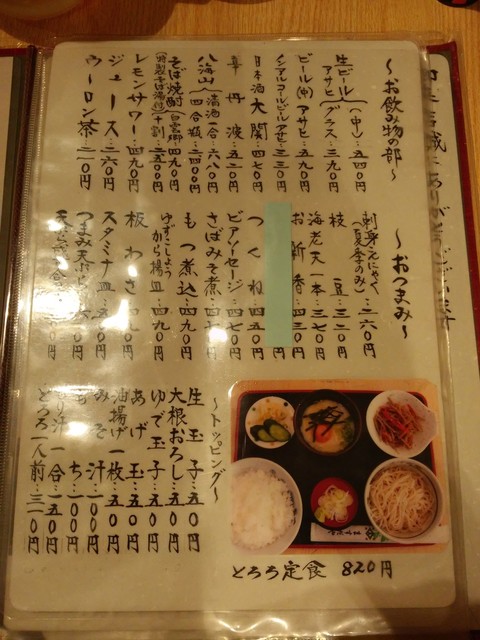 ～お飲み物の部～
生ビール(中)…五四〇円
アサヒ グラス…三九〇円
ビール(中)アサヒ…五九〇円
ノンアルコールビールアサヒ…三三〇円
日本酒 大関…四七〇円
辛丹波…五一〇円
八海山 清酒一合…六八〇円
四合瓶…二四〇〇円
そば焼酎(白雲郷)…四九〇円
(特製そば湯付)十割…五五〇円
レモンサワー…四九〇円
ジュース…二六〇円
ウーロン茶…二一〇円
～おつまみ～
刺身こんにゃく…三六〇円
(夏季のみ)
枝豆…三二〇円
海老天一本…三七〇円
お新香…四三〇円
つくね…四五〇円
ビアソーセージ…四七〇円
さばみそ煮…四七〇円
もつ煮込…四九〇円
ゆずこしょう
から揚皿…四九〇円
板わさ…四九〇円
スタミナ皿…五〇〇円
つまみ天
～トッピング～
生玉子…五〇円
大根おろし…五〇円
ゆで玉子…五〇円
あげ玉…五〇円
油揚げ一枚…一五〇円
みそ汁…一〇〇円
一合…一五〇円
とろろ一人前…三一〇円
とろろ定食 820円